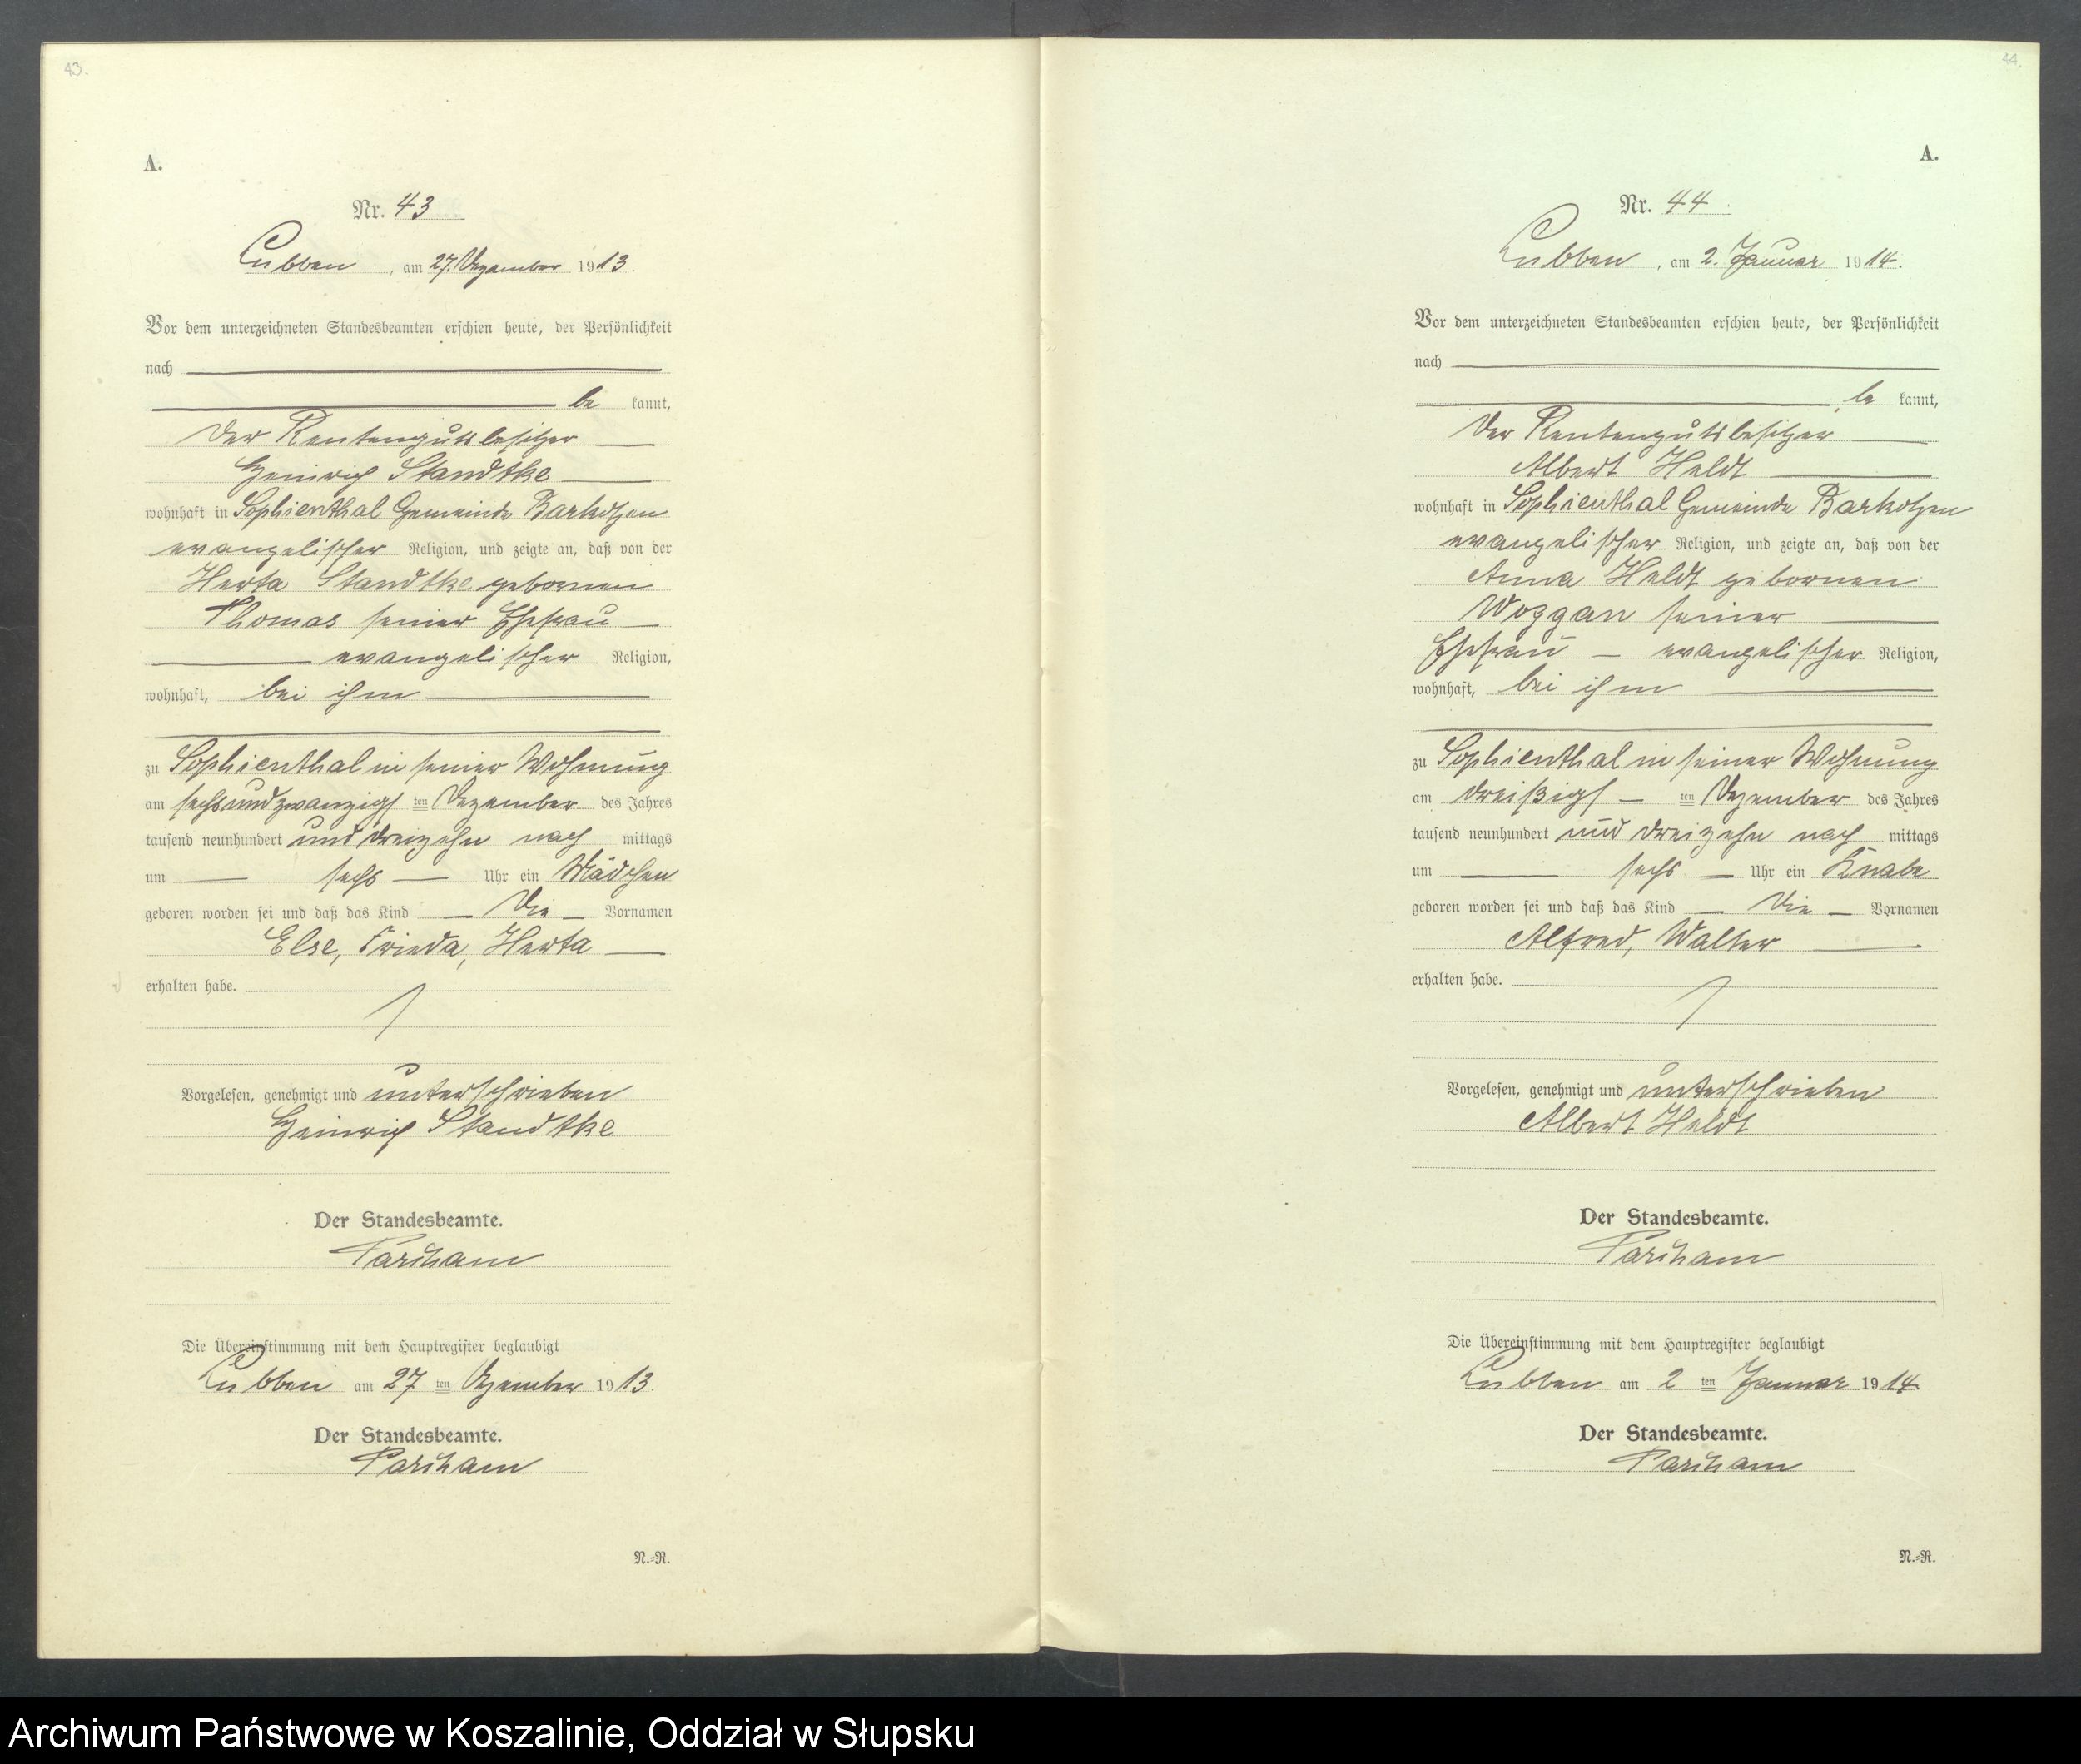 43.
A.
Nr. 43
Lubben, am 27. Dezember 1913.
Vor dem unterzeichneten Standesbeamten erschien heute, der Persönlichkeit
nach
be kannt,
der Rentengutsbesitzer
Heinrich Standtke
wohnhaft in Sophienthal Gemeinde Barkotzen
evangelischer Religion, und zeigte an, daß von der
Herta Standtke gebornen
Thomas seiner Ehefrau
evangelischer Religion,
wohnhaft, bei ihm
zu Sophienthal in seiner Wohnung
am sechsundzwanzigs ten Dezember des Jahres
tausend neunhundert und dreizehn nach mittags
um sechs Uhr ein Mädchen
geboren worden sei und daß das Kind die Vornamen
Else, Frieda, Herta
erhalten habe.
Vorgelesen, genehmigt und unterschrieben
Heinrich Standtke
Der Standesbeamte.
Die Übereinstimmung mit dem Hauptregister beglaubigt
Lubben am 27 ten Dezember 1913.
Der Standesbeamte.
N.=R.
44.
A.
Nr. 44
Lubben, am 2. Januar 1914.
Vor dem unterzeichneten Standesbeamten erschien heute, der Persönlichkeit
nach
be kannt,
der Rentengutsbesitzer
Albert Heldt
wohnhaft in Sophienthal Gemeinde Barkotzen
evangelischer Religion, und zeigte an, daß von der
Anna Heldt gebornen
Woggan seiner
Ehefrau evangelischer Religion,
wohnhaft, bei ihm
zu Sophienthal in seiner Wohnung
am dreißigs ten Dezember des Jahres
tausend neunhundert und dreizehn nach mittags
um sechs Uhr ein Knabe
geboren worden sei und daß das Kind die Vornamen
Alfred, Walter
erhalten habe.
Vorgelesen, genehmigt und unterschrieben
Albert Heldt
Der Standesbeamte.
Die Übereinstimmung mit dem Hauptregister beglaubigt
Lubben am 2 ten Januar 1914
Der Standesbeamte.
N.=R.
Archiwum Państwowe w Koszalinie, Oddział w Słupsku